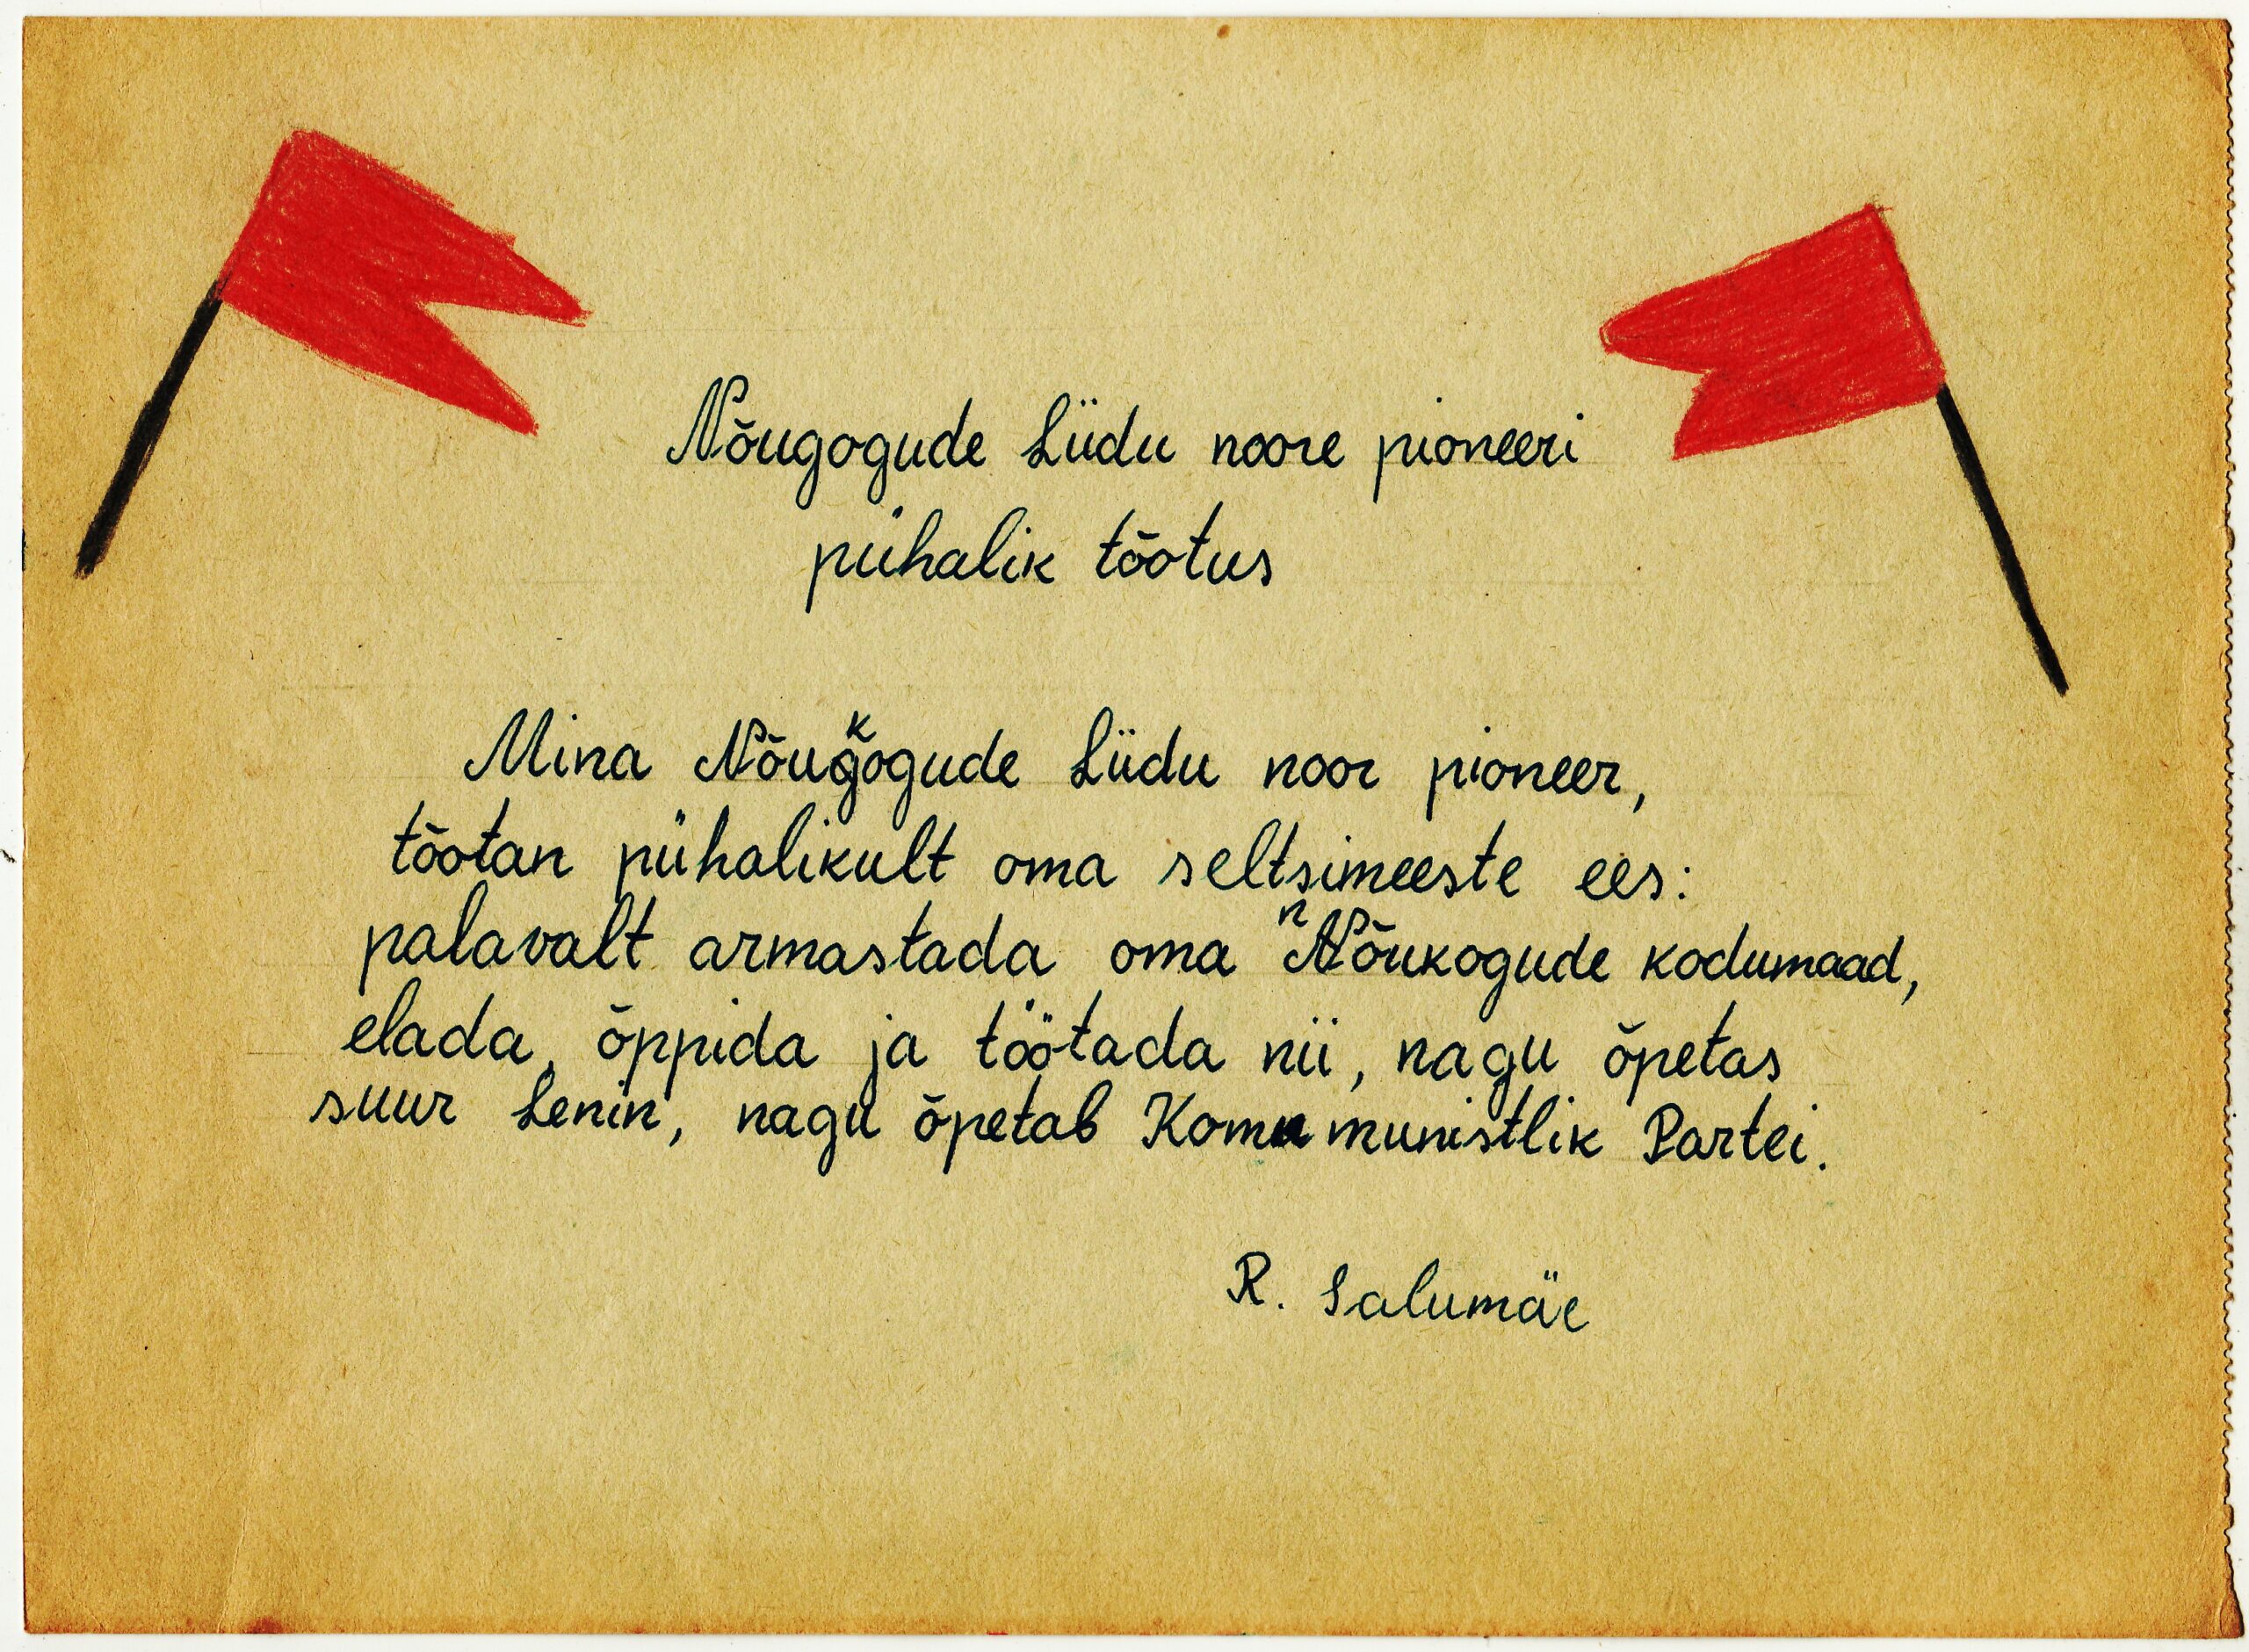 Nõugogude Liidu noore pioneeri
pühalik tõotus
Mina Nõukogude Liidu noor pioneer,
tõotan pühalikult oma seltsimeeste ees:
palavalt armastada oma nõukogude kodumaad,
elada, õppida ja töötada nii, nagu õpetas
suur Lenin, nagu õpetab Kommunistlik Partei.
R. Salumäe